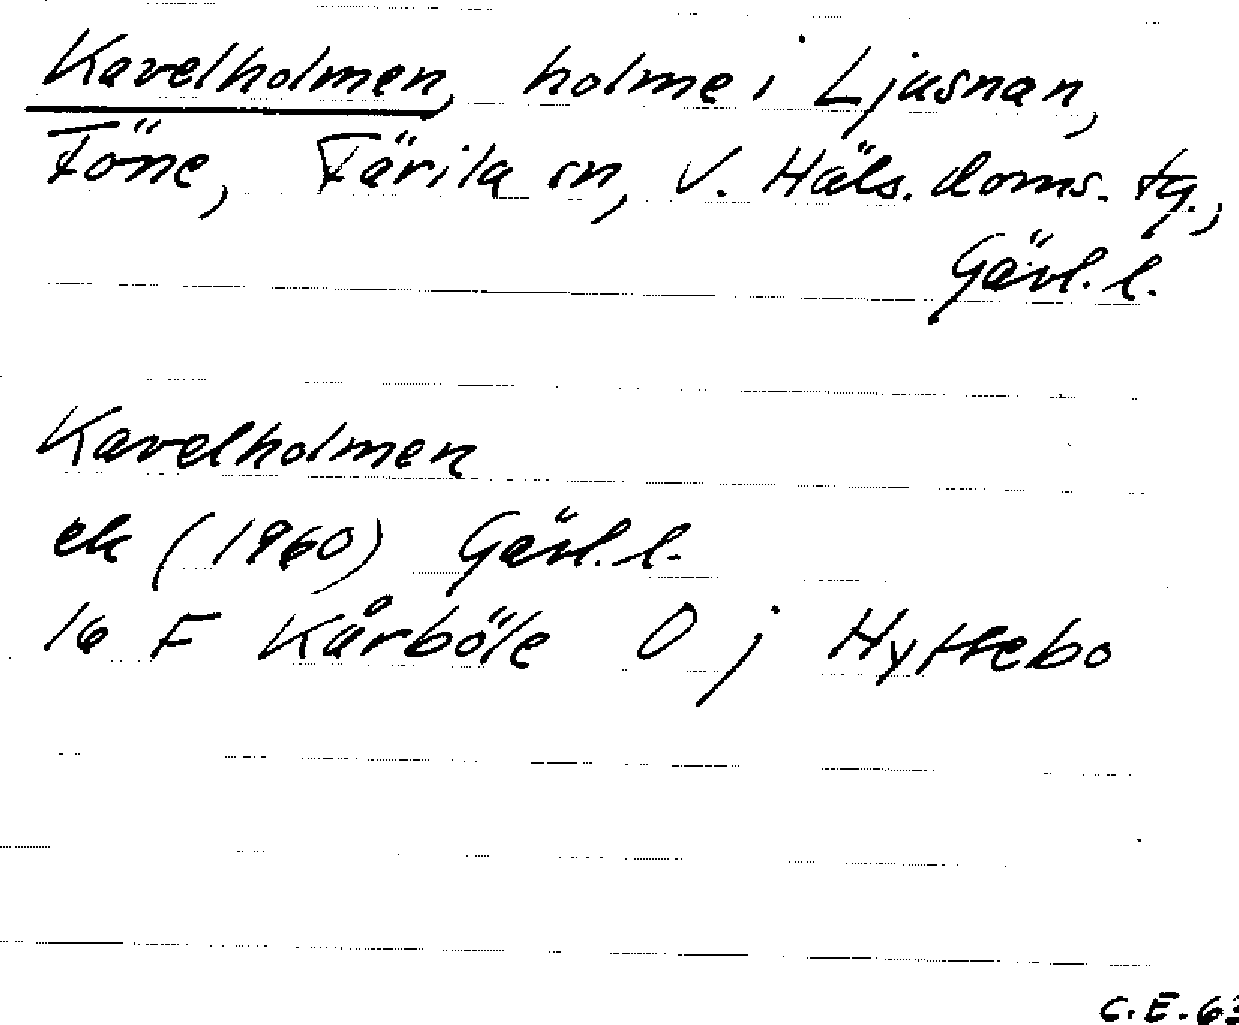 Kavelholmen, holme i Ljusnan,
Föne, Färila sn, V. Häls. doms. tg.,
Gävl. l.
Kavelholmen
ek (1960) Gävl. l.
16 F Kårböle 0 j Hyttebo
C.E. 63